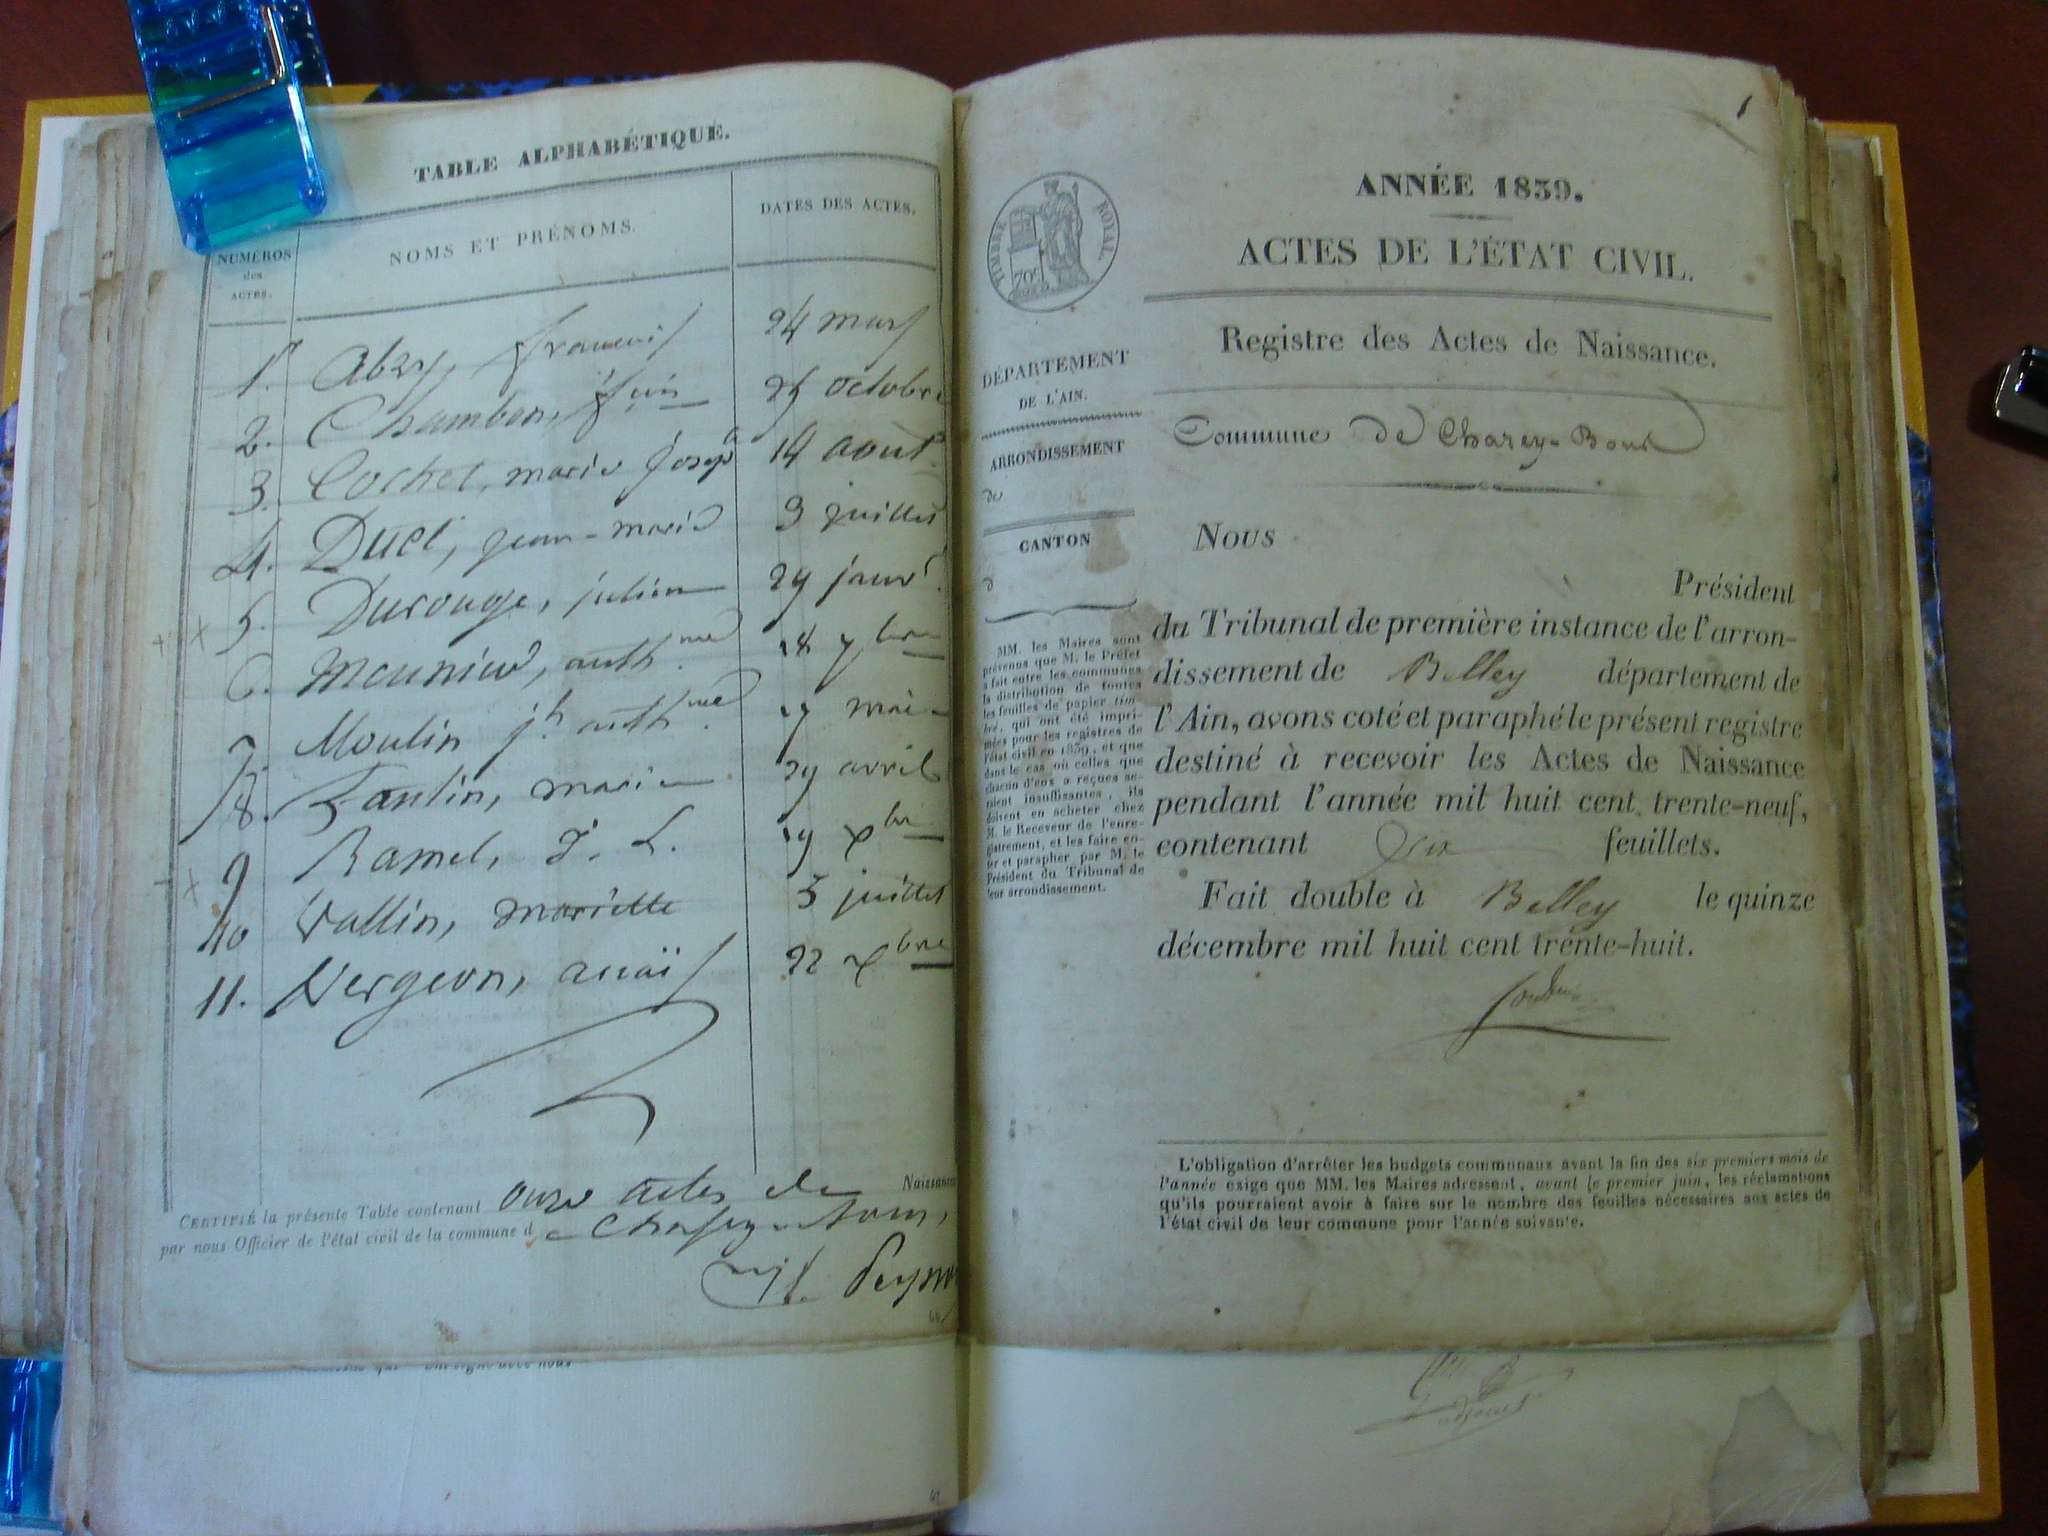 TABLE ALPHABÉTIQUE.
NUMÉROS des ACTES.
NOMS ET PRÉNOMS.
DATES DES ACTES.
1. Abry, françois 24 mars
2. Chambon, 25 octobre
3. Cochet, marie Josep 14 août
4. Duel, jean-marie 3 juillet
5. Durouge, julien 29 janvr.
6. Meunier, anth.me 18 7bre
7. Moulin jh anth.me 17 mai
8. Pantin, marie 29 avril
9 Ramel, J. L. 19 Xbre
10 Vallin, mariette 5 juillet
11. Vergeon, anaïs 22 Xbre
CERTIFIÉ la présente Table contenant onze actes de Naissance
par nous Officier de l'état civil de la commune de Chasey-bons,
1
ANNÉE 1839.
ACTES DE L'ÉTAT CIVIL.
TIMBRE ROYAL
70c
Registre des Actes de Naissance.
Commune de Chazey-Bons
DÉPARTEMENT
DE L'AIN.
ARRONDISSEMENT
de
CANTON
d
MM. les Maires sont
prévenus que M. le Préfet
a fait entre les communes
la distribution de toutes
les feuilles de papier tim-
bré, qui ont été impri-
mées pour les registres de
l'état civil en 1839, et que
dans le cas où celles que
chacun d'eux a reçues se-
raient insuffisantes, ils
doivent en acheter chez
M. le Receveur de l'enre-
gistrement, et les faire co-
ter et parapher par M. le
Président du Tribunal de
leur arrondissement.
Nous
Président
du Tribunal de première instance de l'arron-
dissement de Belley département de
l'Ain, avons coté et paraphé le présent registre
destiné à recevoir les Actes de Naissance
pendant l'année mil huit cent trente-neuf,
contenant six feuillets.
Fait double à Belley le quinze
décembre mil huit cent trente-huit.
L'obligation d'arrêter les budgets communaux avant la fin des six premiers mois de
l'année exige que MM. les Maires adressent, avant le premier juin, les réclamations
qu'ils pourraient avoir à faire sur le nombre des feuilles nécessaires aux actes de
l'état civil de leur commune pour l'année suivante.